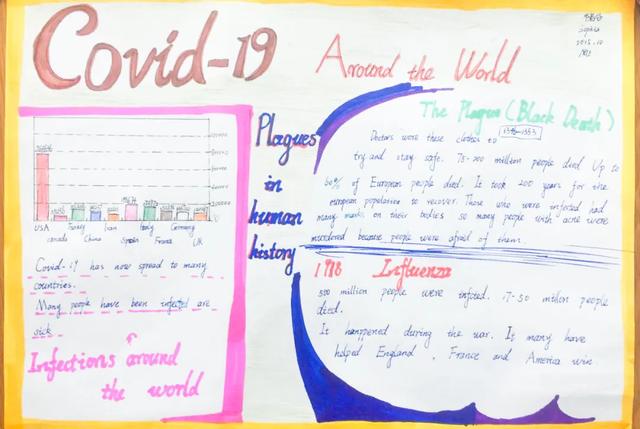 Covid-19
Around the World
Sophia
USA
canada
Turkey
China
Iran
Spain
Italy
France
Germany
UK
Covid-19 has now spread to many
countries.
Many people have been infected are
sick
Infections around
the world
Plagues
in
human
history
The Plague (Black Death)
Doctors wore these clothes to
try and stay safe. 75-200 million people died Up to
60% of European people died. It took 200 years for the
european population to recover. Those who were infected had
many marks on their bodies so many people with acne were
murdered because people were afraid of them.
1918 Influenza
500 million people were infected. 17-50 million people
died.
It happened during the war. It many have
helped England , France and America win.